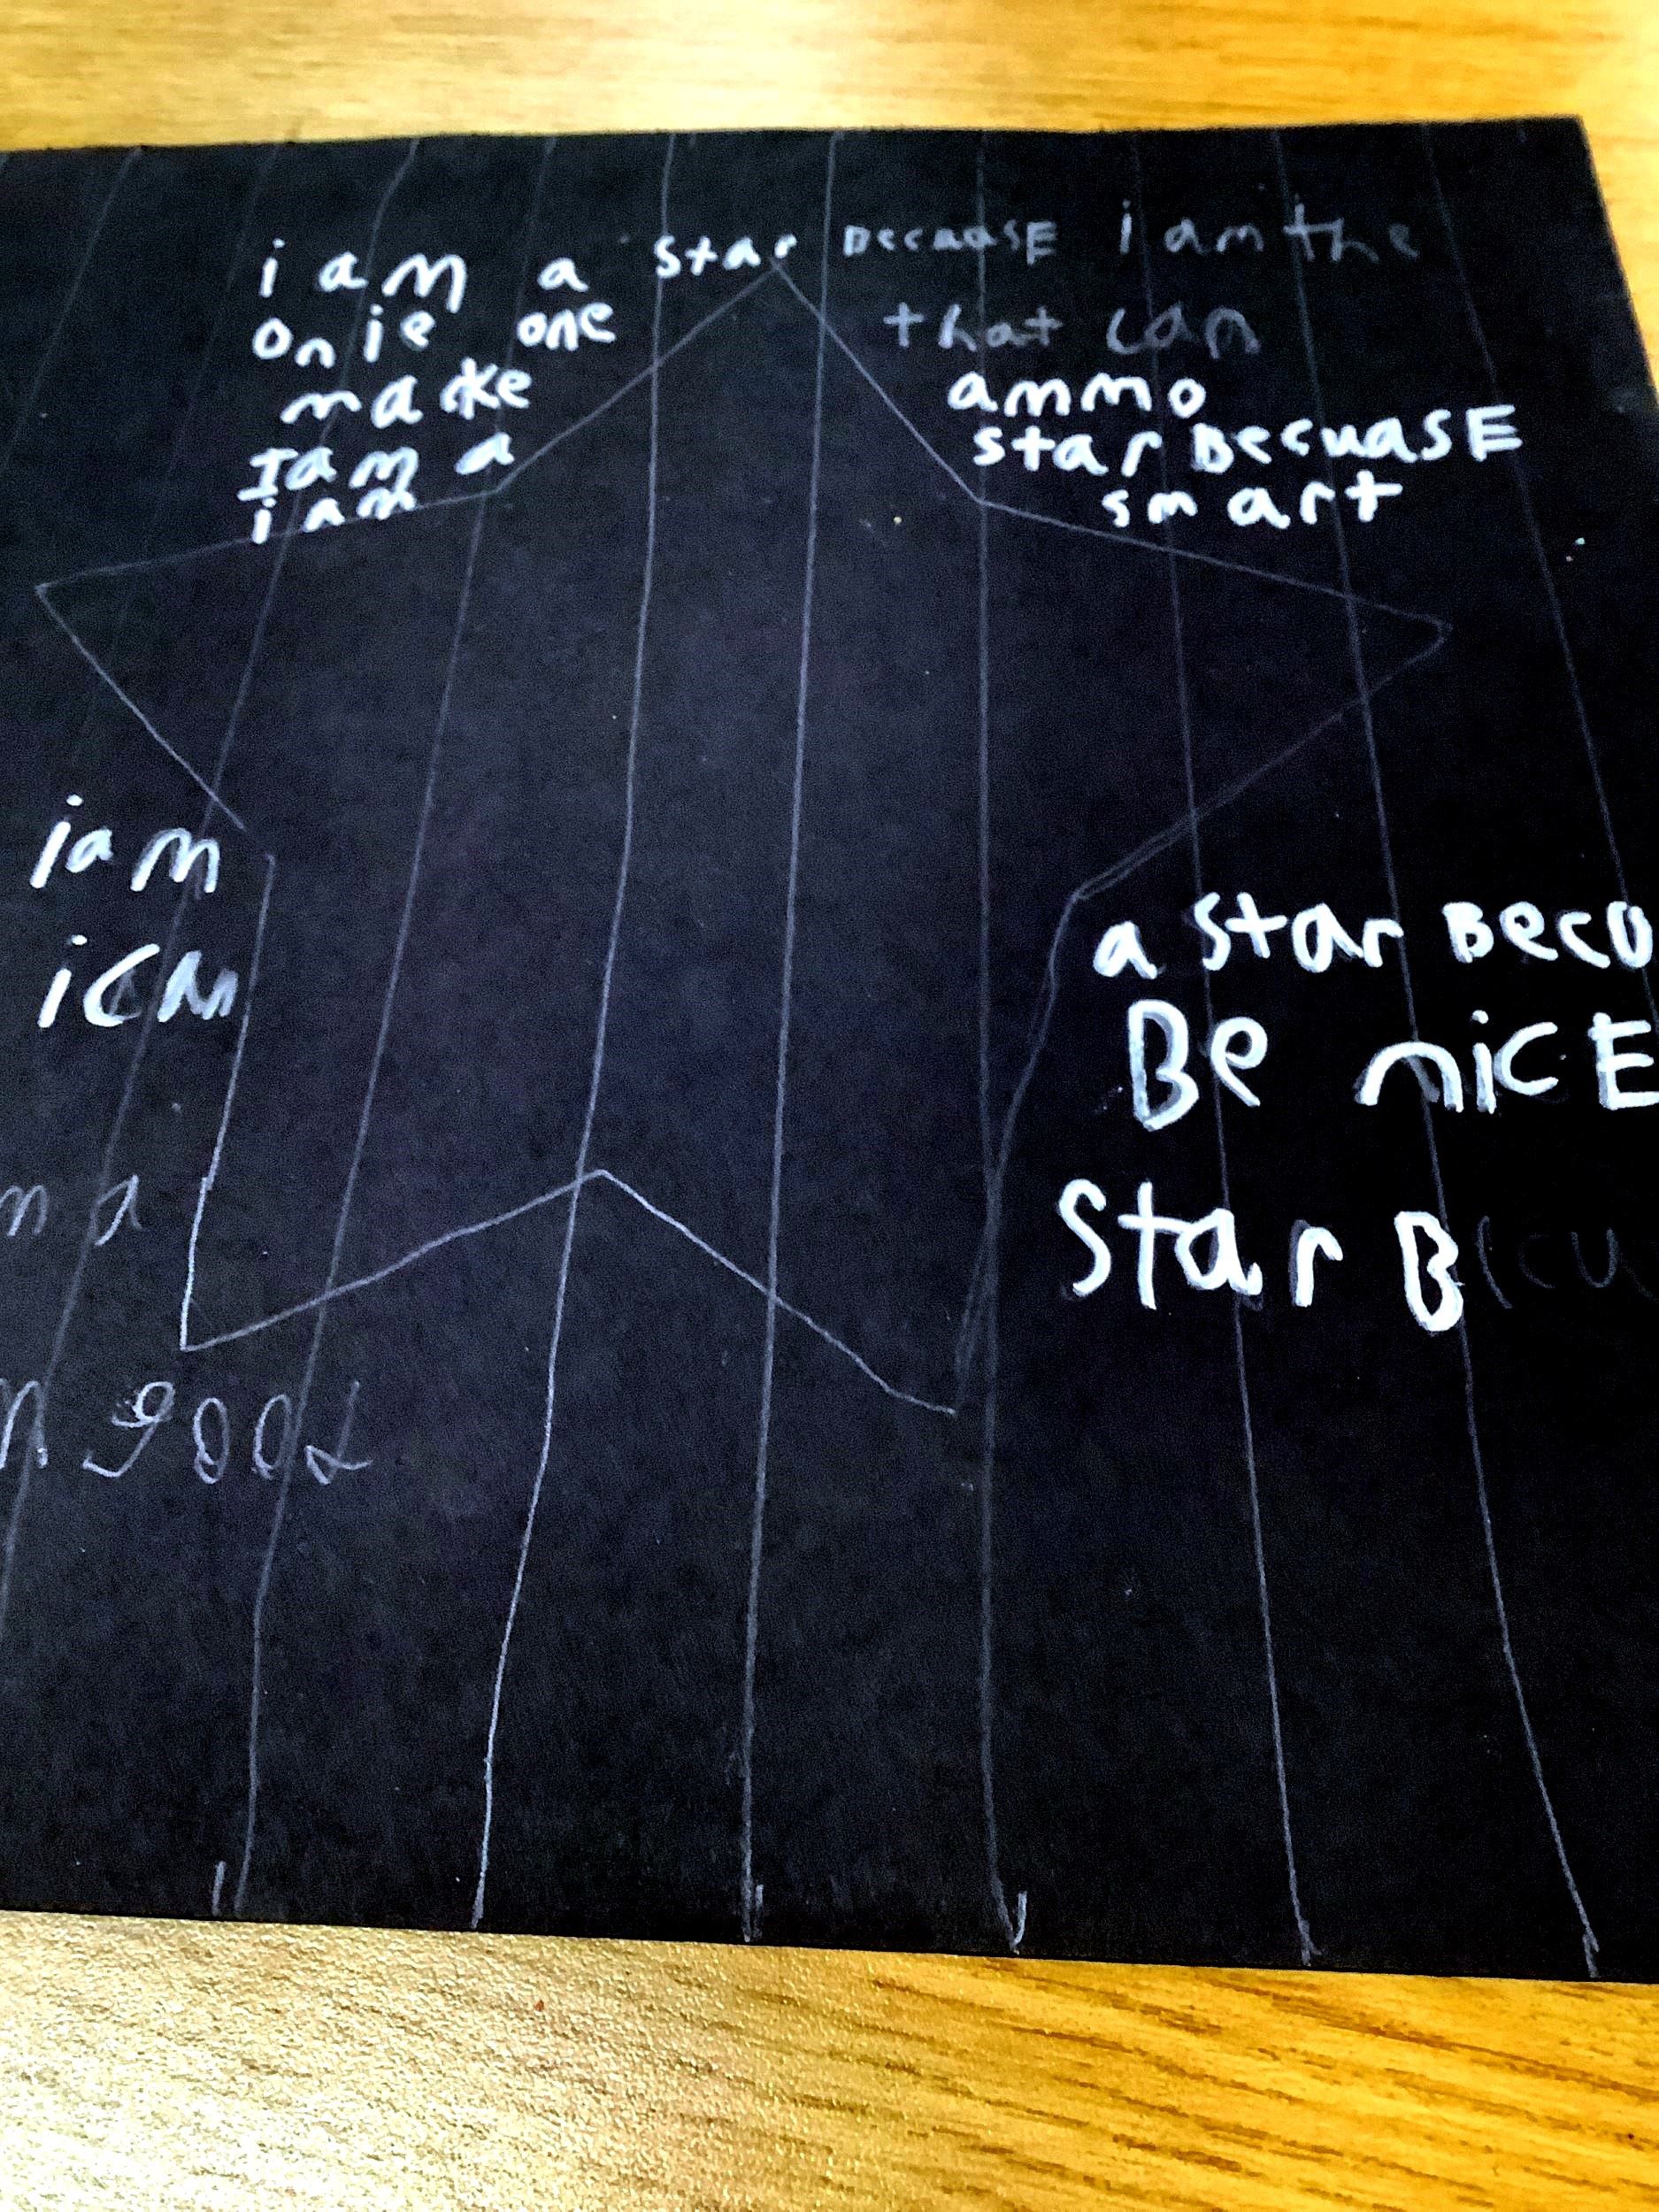 i am a star Becuase i am the
onie one that can
make ammo
I am a star Becuase
i am smart
i am a star Becu
i cn Be nicE
m a star Bcu
m good